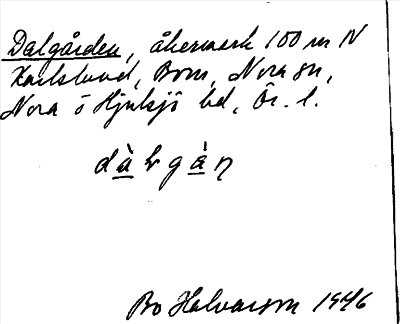 Dalgården, åkermark 100 m N
Karlslund, Bom, Nora sn,
Nora o Hjulsjö bd, Ör. l.
dàlgàn
Bo Halvarson 1946